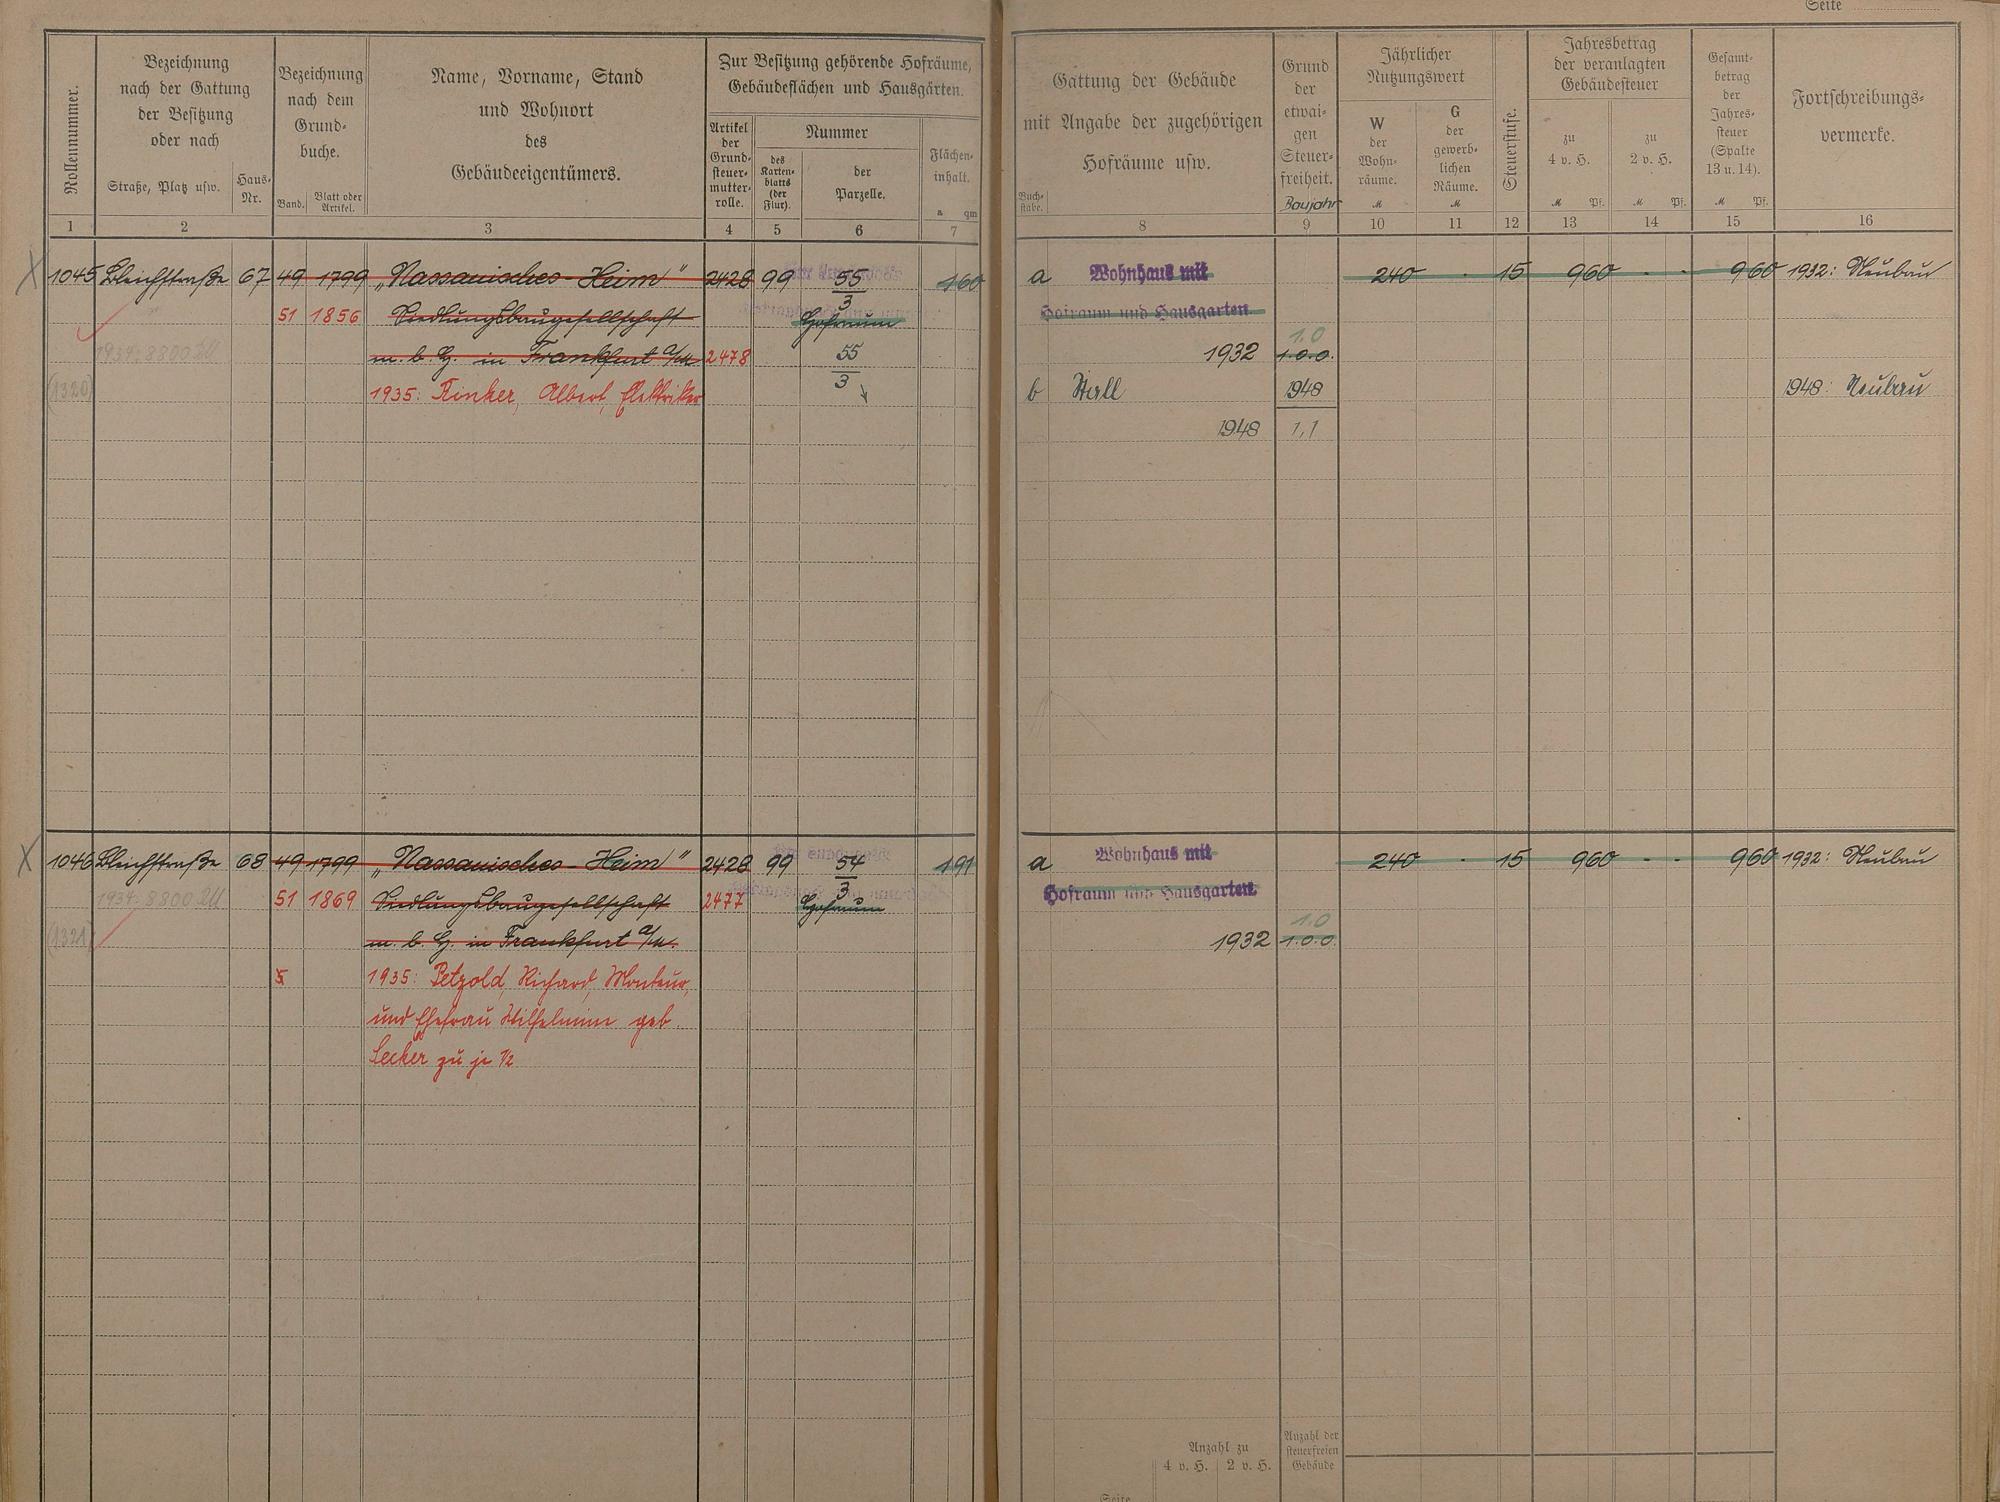 Seite
Rollennummer.
Bezeichnung
nach der Gattung
der Besitzung
oder nach
Straße, Platz usw.
Haus-
Nr.
Bezeichnung
nach dem
Grund-
buche.
Band.
Blatt oder
Artikel.
Name, Vorname, Stand
und Wohnort
des
Gebäudeeigentümers.
Zur Besitzung gehörende Hofräume,
Gebäudeflächen und Hausgärten.
Artikel
der
Grund-
steuer-
mutter-
rolle.
Nummer
des
Karten-
blatts
(der
Flur).
der
Parzelle.
Flächen-
inhalt.
a qm
Gattung der Gebäude
mit Angabe der zugehörigen
Hofräume usw.
Buch-
stabe.
Grund
der
etwai-
gen
Steuer-
freiheit.
Baujahr
Jährlicher
Nutzungswert
W
der
Wohn-
räume.
M
G
der
gewerb-
lichen
Räume.
M
Steuerstufe.
Jahresbetrag
der veranlagten
Gebäudesteuer
zu
4 v. H.
M Pf.
zu
2 v. H.
M Pf.
Gesamt-
betrag
der
Jahres-
steuer
(Spalte
13 u. 14).
M Pf.
Fortschreibungs-
vermerke.
1 2 3 4 5 6 7 8 9 10 11 12 13 14 15 16
1045 Bleichstraße 67 49 1799 „Nassauisches-Heim" 2428 99 55/3 160 a Wohnhaus mit 240 - 15 960 - - 960 1932: Neubau
51 1856 Siedlungsbaugesellschaft Hofraum Hofraum und Hausgarten
1934: 8800 m. b. H. in Frankfurt a/M. 2478 55/3 1932 1.0 1.0.0.
(1320) 1935: Rinker, Albert, Elektriker b Stall 1948 1948: Neubau
1948 1,1
1046 Bleichstraße 68 49 1799 „Nassauisches-Heim" 2428 99 54/3 191 a Wohnhaus mit 240 - 15 960 - - 960 1932: Neubau
1934: 8800 51 1869 Siedlungsbaugesellschaft 2477 Hofraum Hofraum und Hausgarten
(1321) m. b. H. in Frankfurt a/M. 1932 1.0 1.0.0.
1935: Petzold, Richard, Monteur,
und Ehefrau Wilhelmine geb.
Lecker zu je 1/2
Anzahl zu
4 v. H. 2 v. H.
Anzahl der
steuerfreien
Gebäude
Seite